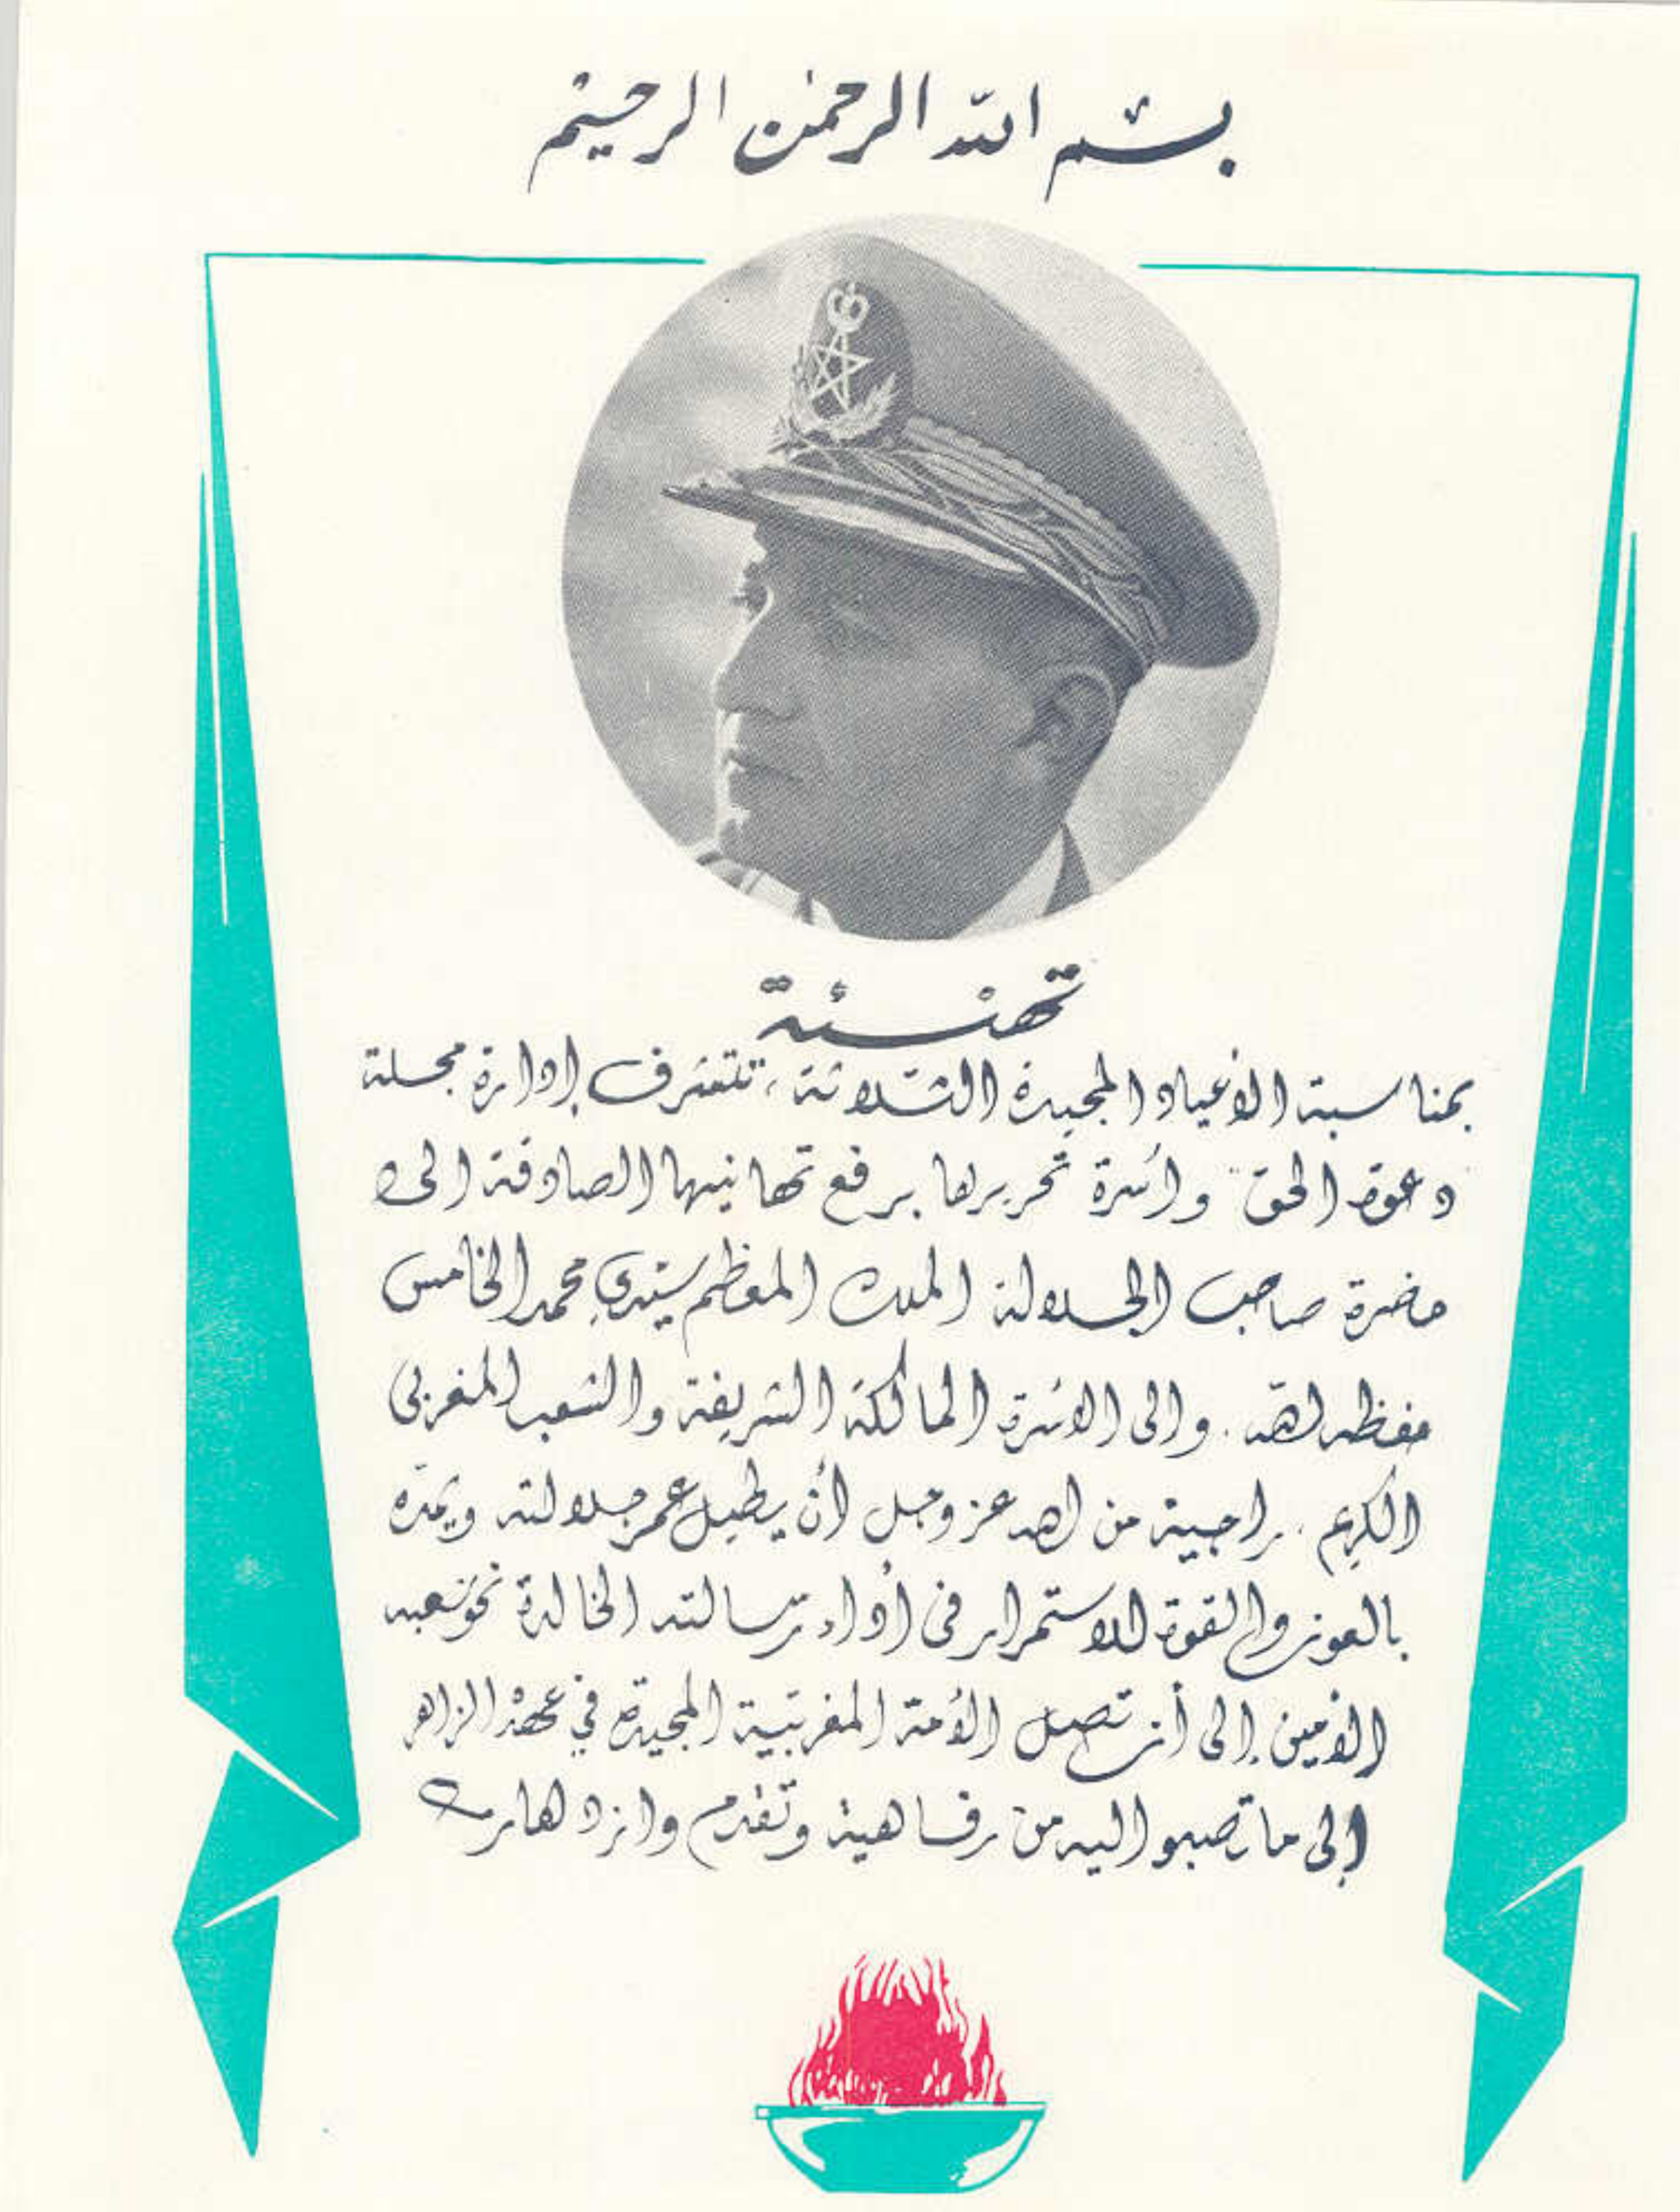 بسم الله الرحمن الرحيم
تهنئة
بمناسبة الأعياد المجيدة الثلاثة، تتشرف إدارة مجلة
"دعوة الحق" وأسرة تحريرها برفع تهانيها الصادقة إلى
حضرة صاحب الجلالة الملك المعظم سيدي محمد الخامس
حفظه الله. وإلى الأسرة المالكة الشريفة والشعب المغربي
الكريم، راجية من الله عز وجل أن يطيل عمر جلالته ويمده
بالعون والقوة للاستمرار في أداء رسالته الخالدة نحو شعبه
الأمين إلى أن تصل الأمة المغربية المجيدة في عهده الزاهر
إلى ما تصبو إليه من رفاهية وتقدم وازدهار